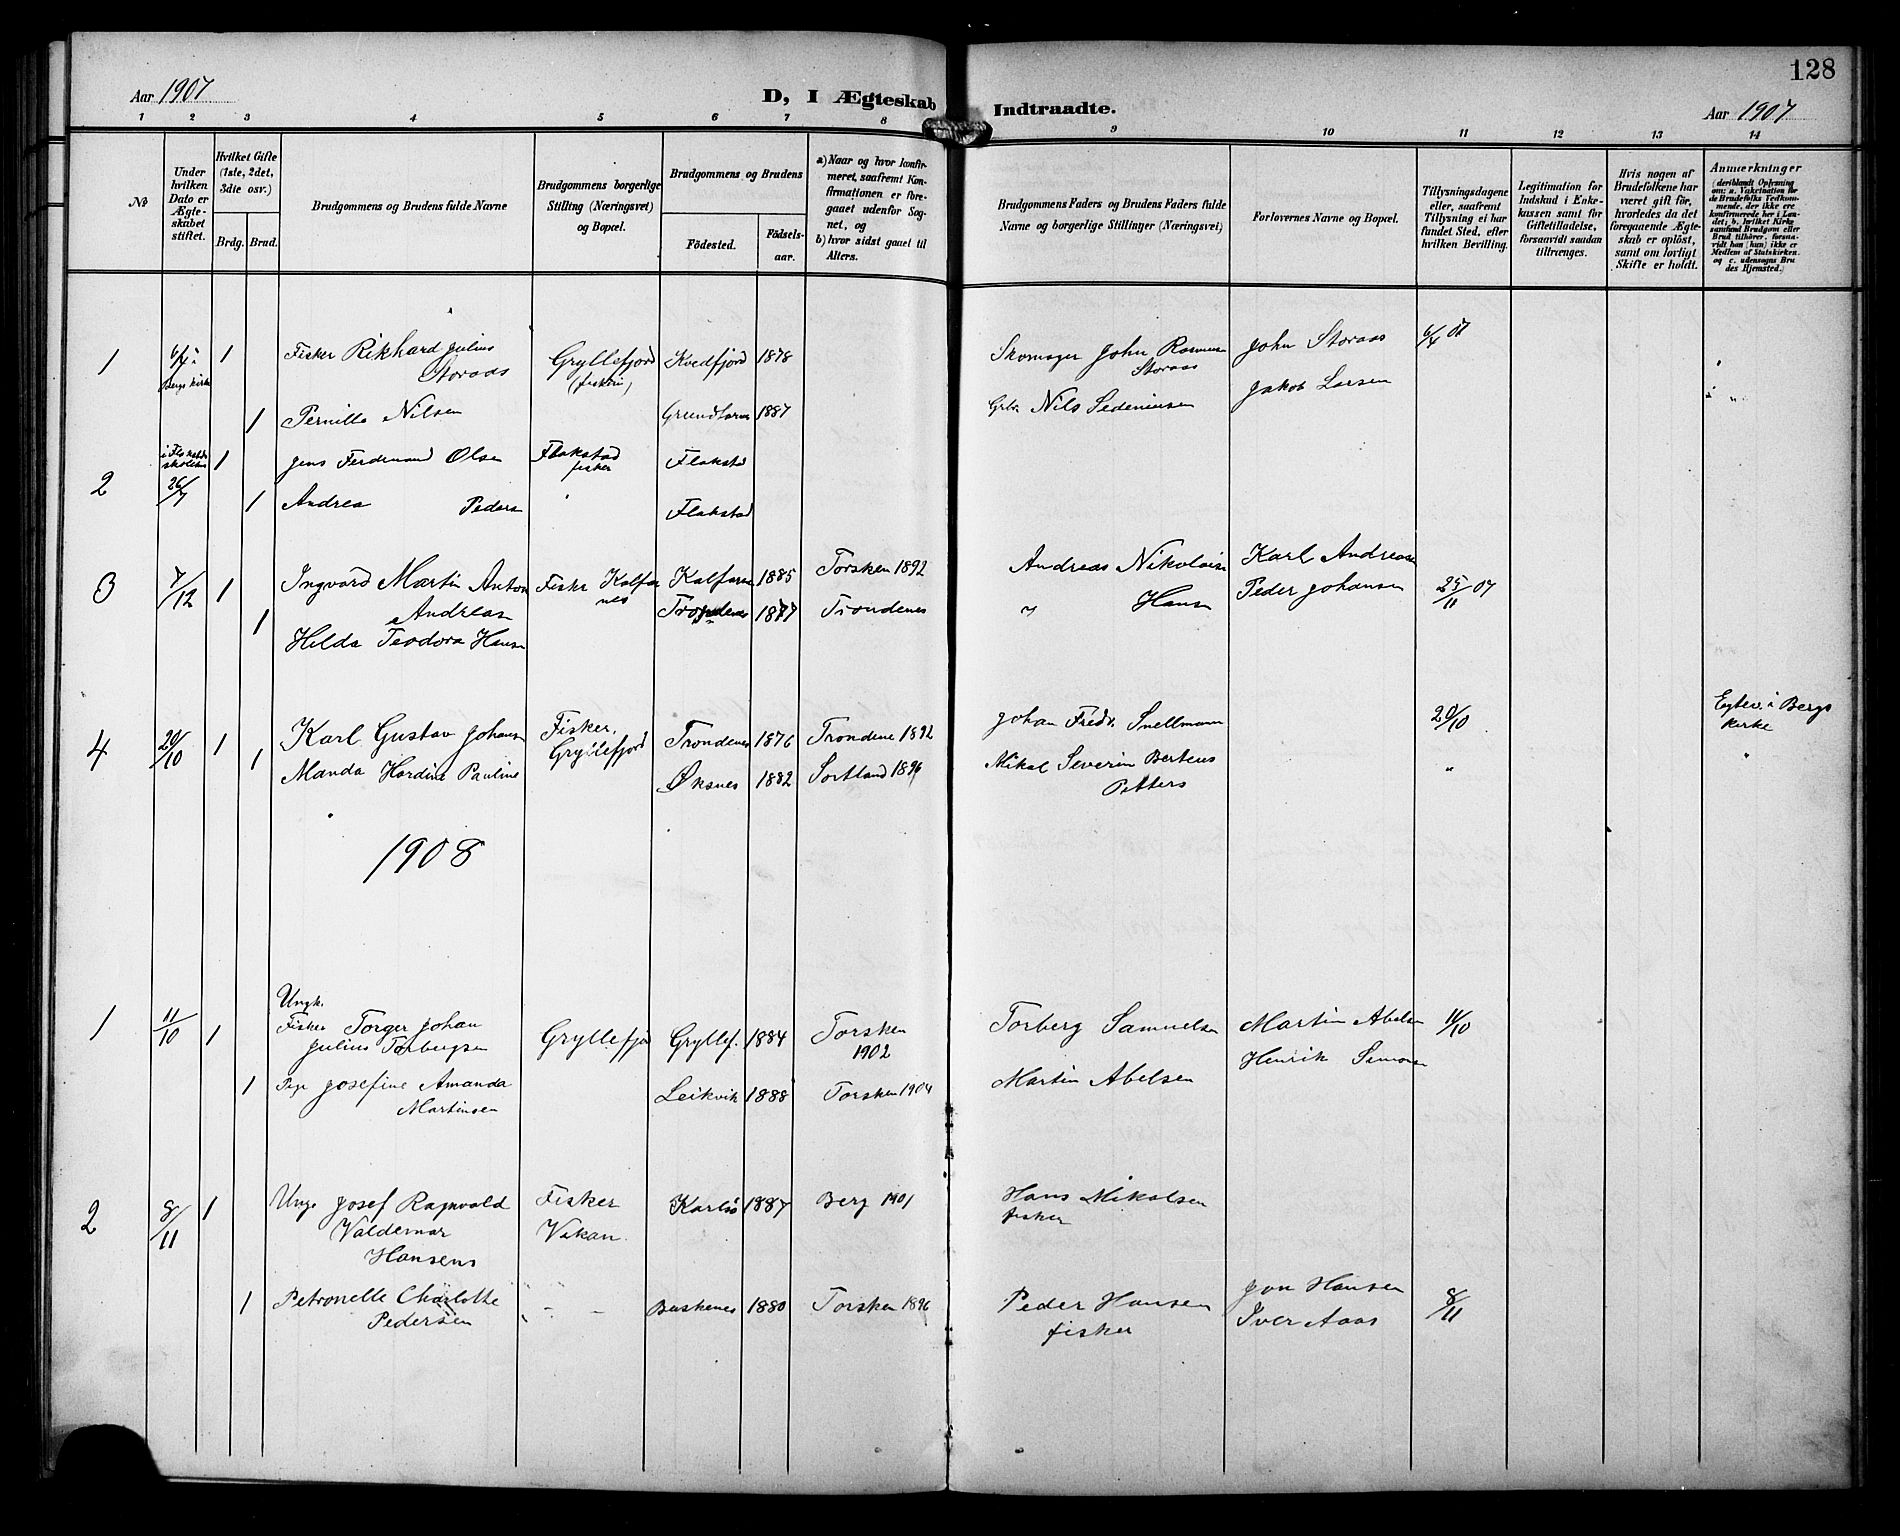 128
Aar 1907
D, I Ægteskab Indtraadte.
Aar 1907
1 2 3 4 5 6 7 8 9 10 11 12 13 14
No
Under hvilken Dato er Ægteskabet stiftet.
Hvilket Gifte (1ste, 2det, 3die osv.)
Brdg. Brud.
Brudgommens og Brudens fulde Navne
Brudgommens borgerlige Stilling (Næringsvei) og Bopæl.
Brudgommens og Brudens
Födested.
Födsels-aar.
a) Naar og hvor konfirmeret, saafremt Konfirmationen er foregaaet udenfor Sognet, og
b) hvor sidst gaaet til Alters.
Brudgommens Faders og Brudens Faders fulde Navne og borgerlige Stillinger (Næringsvei)
Forlovernes Navne og Bopæl.
Tillysningsdagene eller, saafremt Tillysning ei har fundet Sted, efter hvilken Bevilling.
Legitimation for Indskud i Enkekassen samt for Giftetilladelse, forsaavidt saadan tiltrænges.
Hvis nogen af Brudefolkene har været gift för, hvorledes da det foregaaende Ægteskab er oplöst, samt om lovligt Skifte er holdt.
Anmærkninger
(deriblandt Oplysning om: a. Vakcination for de Brudefolks Vedkommende, der ikke ere konfirmerede her i Landet; b. hvilket Kirkesamfund Brudgom eller Brud tilhörer, forsaavidt han (hun) ikke er Medlem af Statskirken, og c. udensogns Brudes Hjemsted.)
1 Bergs kirke 1 Fisker Rikhard Julius Storaas Gryllefjord (fiskeri) Kvedfjord 1878 Skomager John Rasmusen Storaas John Storaas 6/4 07
1 Pernille Nilsen 1887 Nils Sedeniusen Jakob Larsen
2 26/7 1 Jens Ferdinand Olsen Flakstad fisker Flakstad
1 Andrea Peders Flakstad
3 7/12 1 Ingvard Martin Anton Andreas Fisker Kalfarnes Kalfarnes 1885 Torsken 1892 Andreas Nikolaisen Karl Andreas 25/11 07
1 Hilda Teodora Hansen Trondenes 1877 Trondenes " Hans Peder Johansen
4 20/10 1 Karl Gustav Johansen Fisker, Gryllefjord Trondenes 1876 Trondene 1892 Johan Fredr. Snellmann 20/10 Egtev. i Bergs kirke
1 Manda Hardine Pauline Øksnes 1882 Sortland 1896 Mikal Severin Bertens Petters " "
1908
1 11/10 1 Ungk. Fisker Torger Johan Julius Torbergsen Gryllefjo Gryllef. 1884 Torsken 1902 Torberg Samuelsen Martin Abelsen 11/10
1 Pige Josefine Amanda Martinsen Leikvik 1888 Torsken 1904 Martin Abelsen Henrik Simonsen
2 8/11 1 Ung. Josef Ragnvald Valdemar Hansens Fisker Vakan. Karlsö 1887 Berg 1901 Hans Mikalsen fisker
1 Petronelle Charlotte Pedersen - - Baskenes 1880 Torsken 1896 Peder Hansen fisker Jon Hansen Iver Aaas 8/11